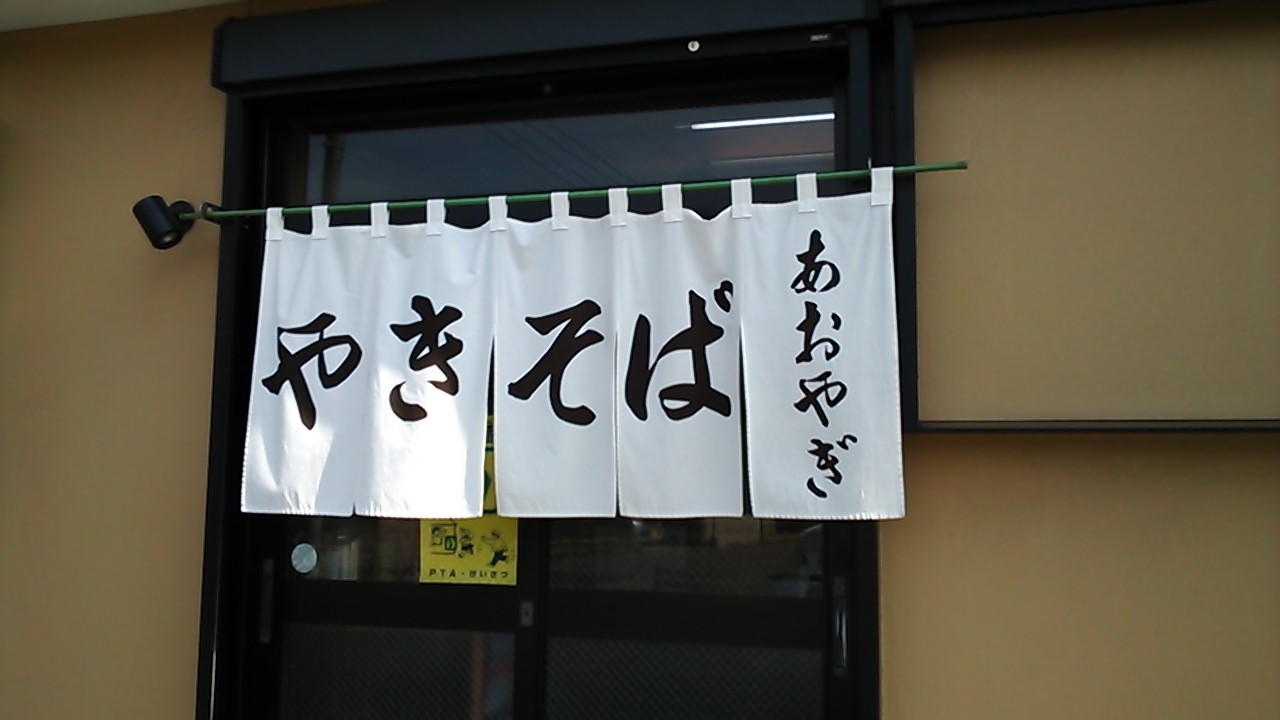 やきそば
あおやぎ
PTA・けいさつ